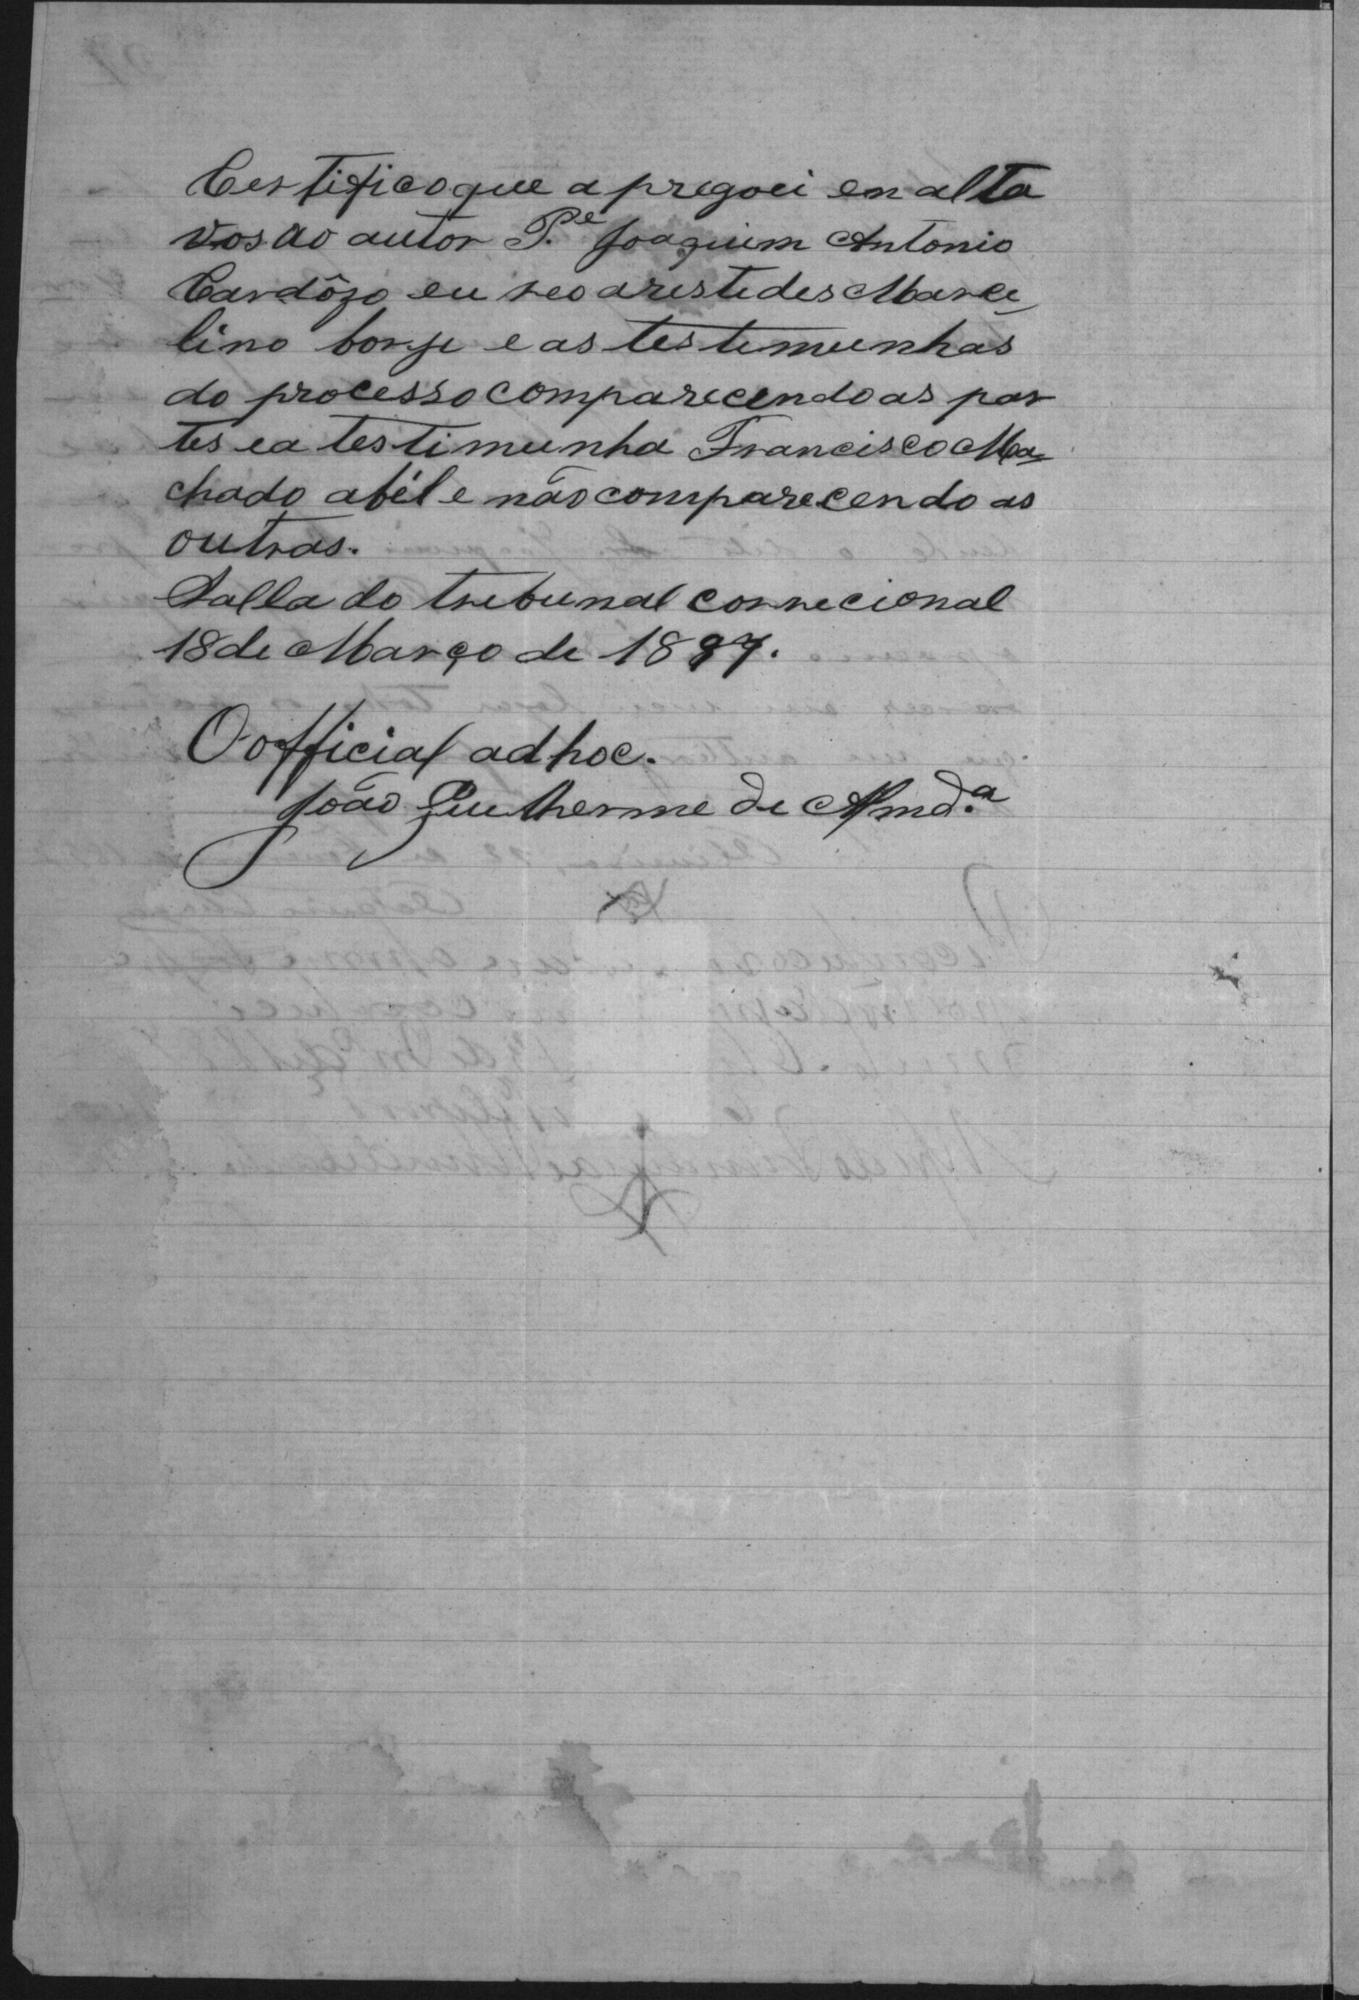 Certifico que apregoei en alta
vos ao autor P.e Joaquim Antonio
Cardôzo eu reo arestedes Marce
lino borge e as testemunhas
do processo comparecendo as par
tes ea testimunha Francisco Ma
chado abél e não comparecendo as
outras.
Salla do tribunal correcional
18 de Março de 1897.
O official ad hoc.
João Guilherme de Almd.a